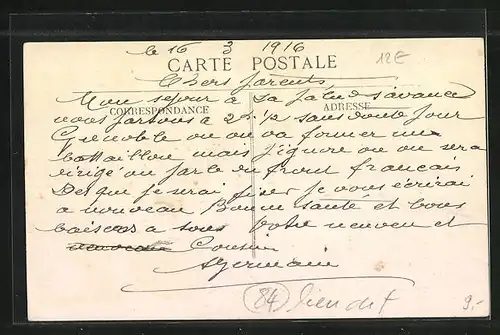 le 16 3 1916
12E
CARTE POSTALE
Chers parents
Mon sejour à La Palud s'avance
CORRESPONDANCE ADRESSE
nous partons à 2h 1/2 sans doute pour
Grenoble ou on va former un
battaillon mais j'ignore ou on sera
dirigé on parle du front français
Des que je serai fixer je vous écrirai
a nouveau Bonne santé et bons
baisers a tous Votre neveu et
Cousin
Germain
84 lieu dit
9.-